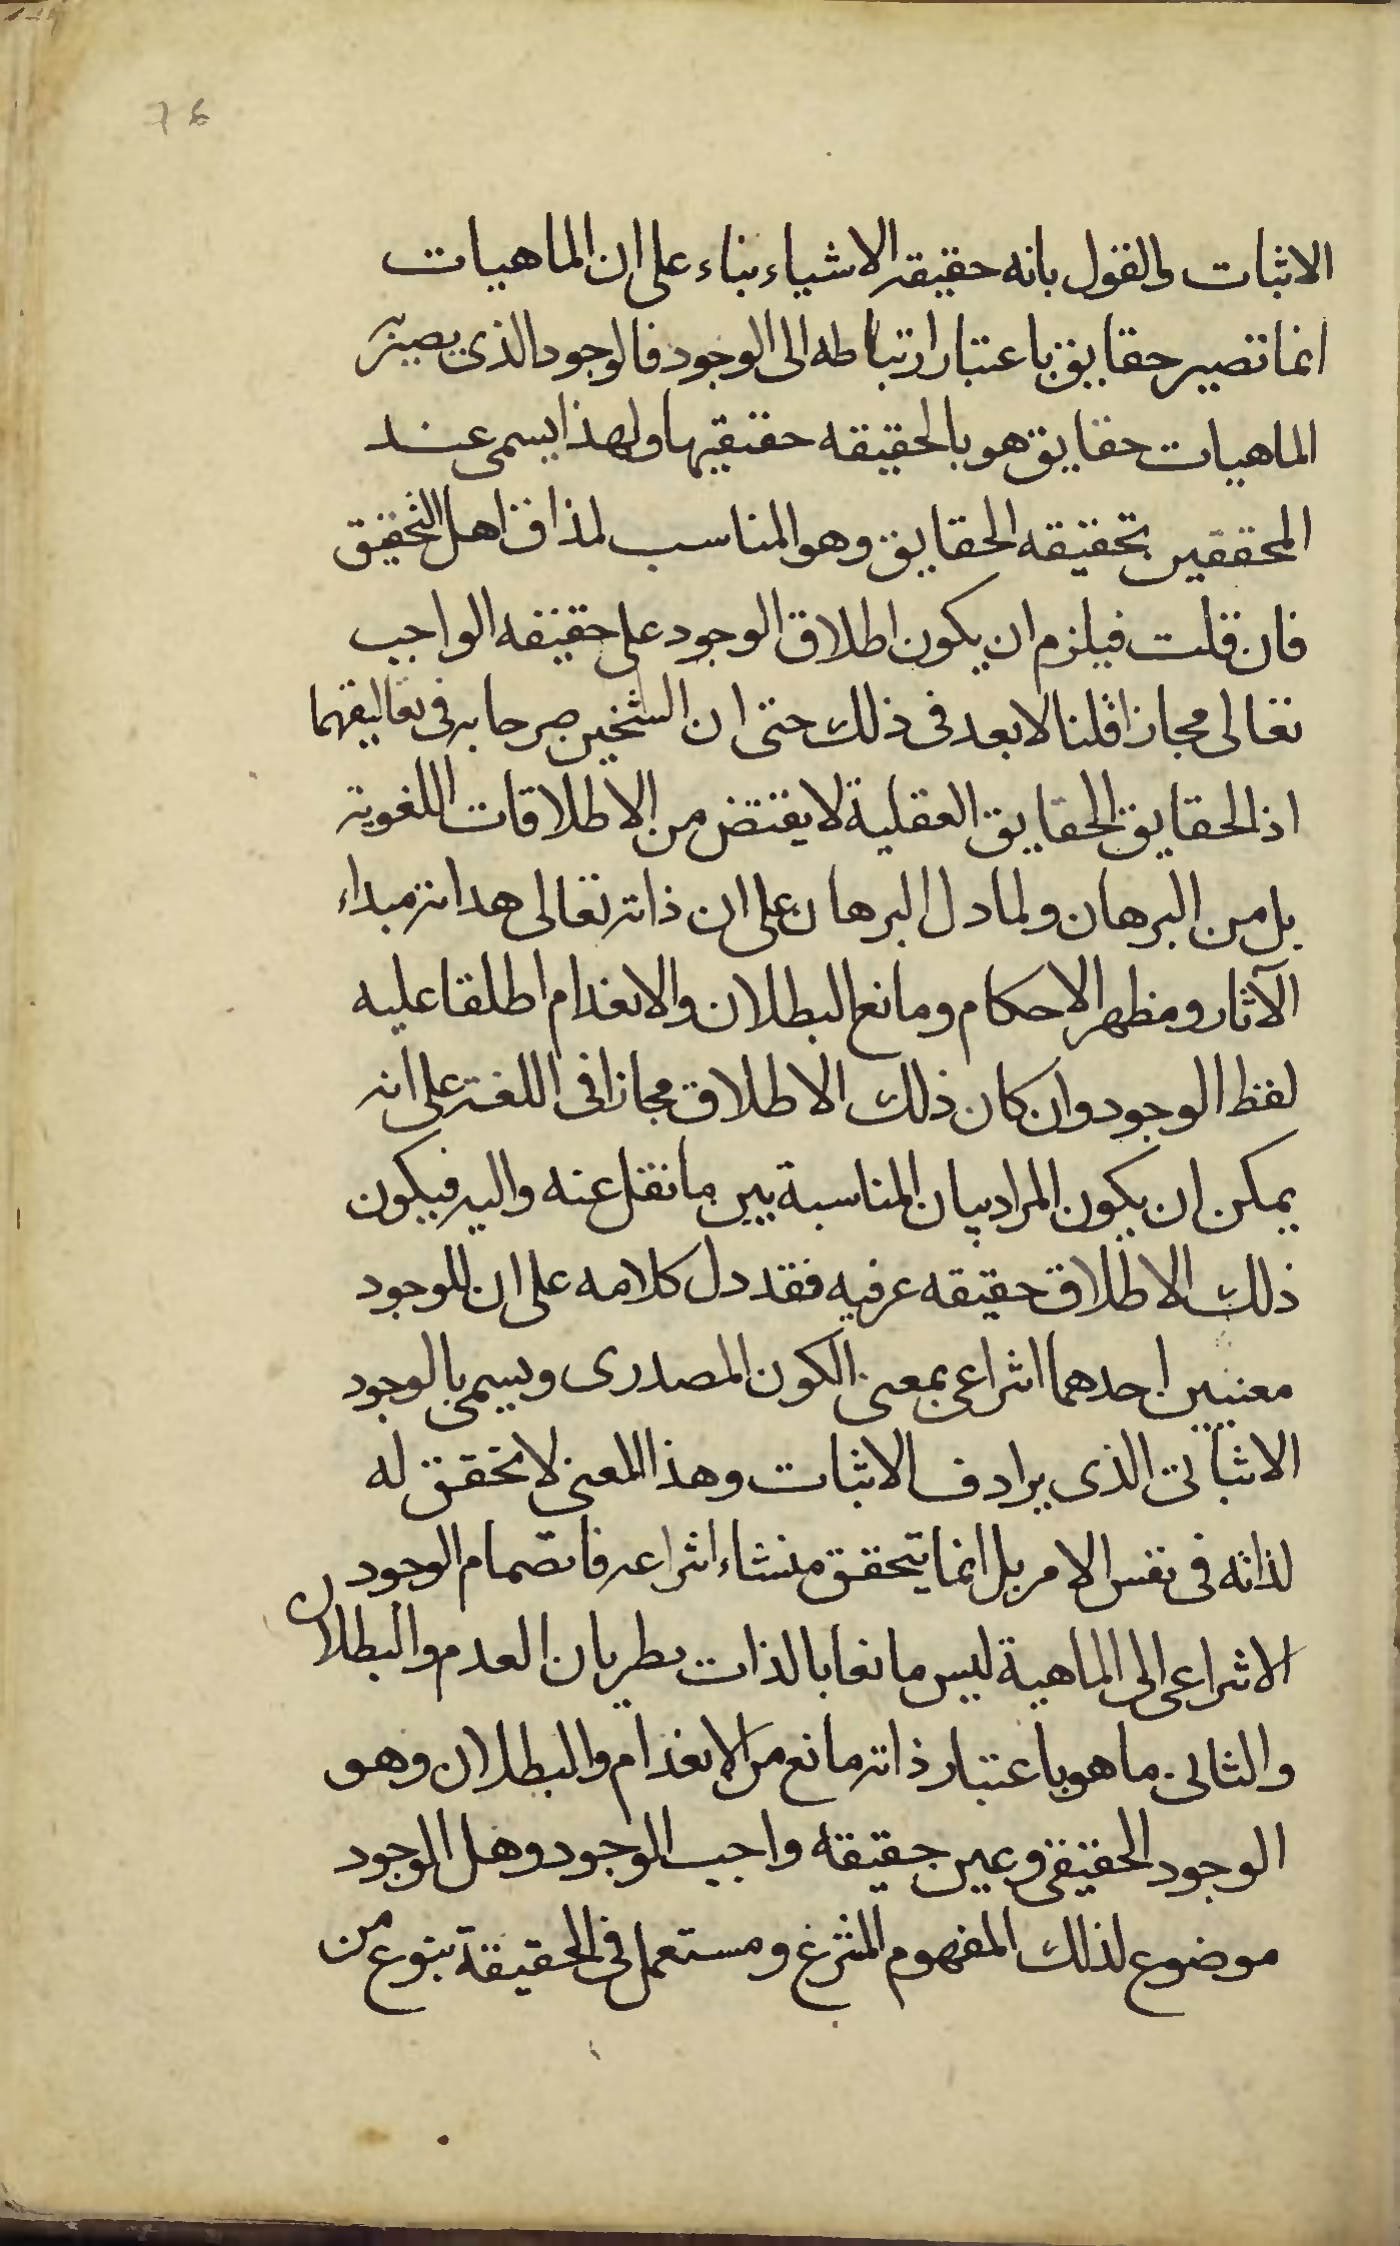 76
الاثبات والقول بانه حقيقة الاشياء بناء على ان الماهيات
انما تصير حقايق باعتبار ارتباطه الى الوجود فالوجود الذى يصير به
الماهيات حقايق هو بالحقيقه حقيقيها ولهذا يسمى عند
المحققين بحقيقه الحقايق وهو المناسب لمذاق اهل التحقيق
فان قلت فيلزم ان يكون اطلاق الوجود على حقيقه الواجب
تعالى مجازا قلنا لا بعد فى ذلك حتى ان الشيخين صرحا به فى تعاليقهما
اذ الحقايق الحقايق العقلية لا يقتنض من الاطلاقات اللغوية
بل من البرهان ولما دل البرهان على ان ذاته تعالى هداته مبداء
الآثار ومظهر الاحكام ومانع البطلان والانعدام اطلقا عليه
لفظ الوجود وان كان ذلك الاطلاق مجازا فى اللغة على انه
يمكن ان يكون المراد بيان المناسبة بين ما نقل عنه واليه فيكون
ذلك الاطلاق حقيقه عرفيه فقد دل كلامه على ان للوجود
معنيين احدهما انتزاعى بمعنى الكون المصدرى ويسمى بالوجود
الاثباتى الذى يرادف الاثبات وهذا المعنى لا تحقق له
لذاته فى نفس الامر بل انما يتحقق منشاء انتزاعه فانضمام الوجود
الانتزاعى الى الماهية ليس مانعا بالذات بطريان العدم والبطلان
والثانى ما هو باعتبار ذاته مانع من الانعدام والبطلان وهو
الوجود الحقيقى وعين حقيقه واجب الوجود وهل الوجود
موضوع لذلك المفهوم المنتزع ومستعمل فى الحقيقة بنوع من